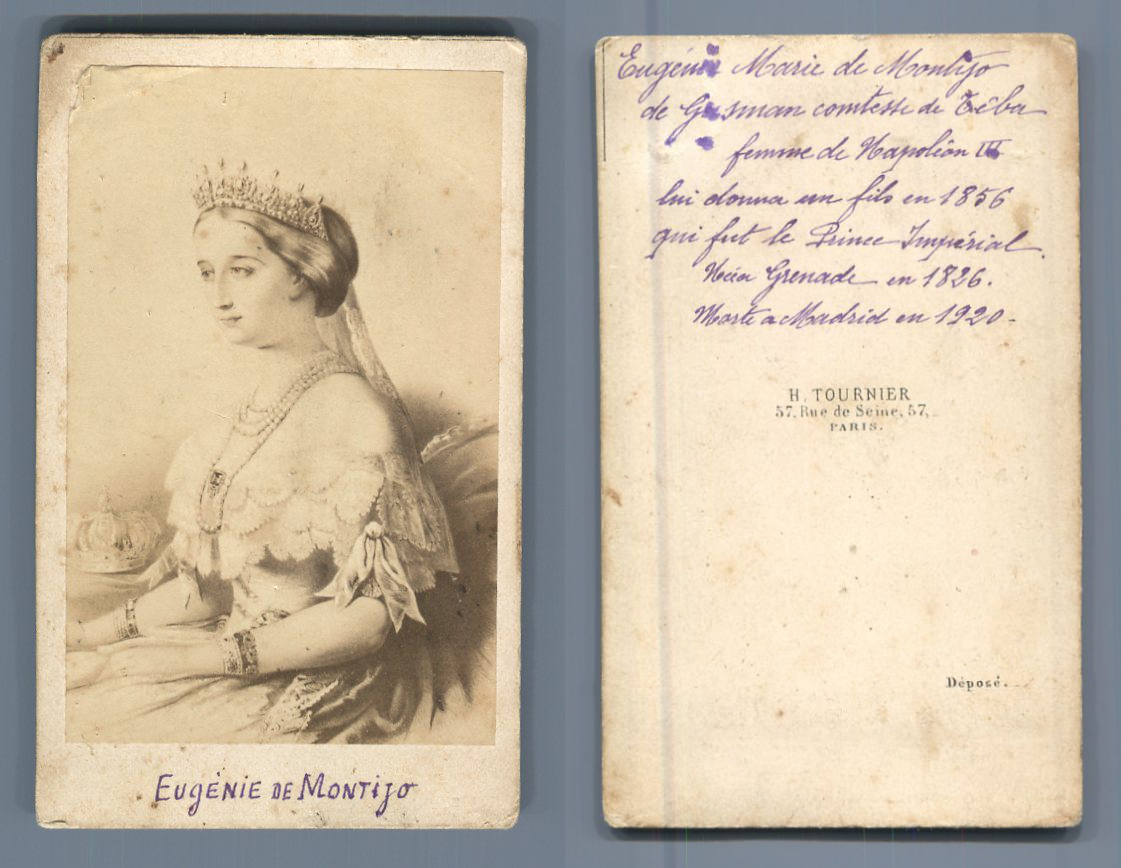 EUGÉNIE DE MONTIJO
Eugénie Marie de Montijo
de Gusman comtesse de Téba
femme de Napoléon III
lui donna un fils en 1856
qui fut le Prince Impérial.
Née a Grenade en 1826.
Morte a Madrid en 1920-
H. TOURNIER
57, Rue de Seine, 57,
PARIS.
Déposé.